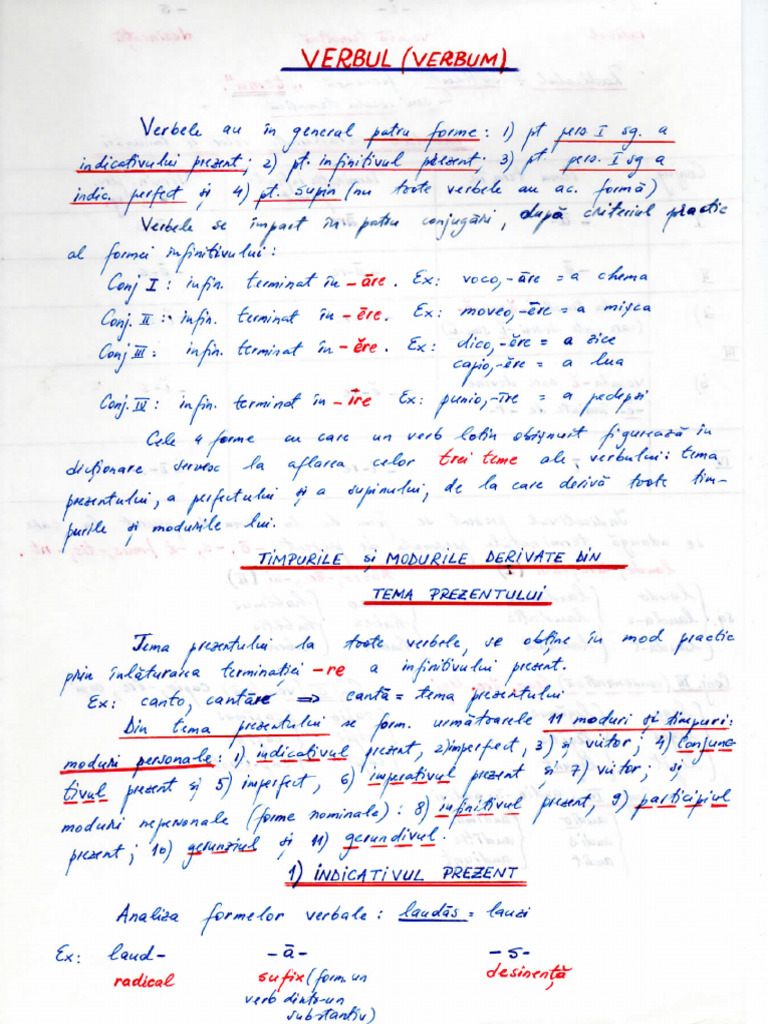 VERBUL (VERBUM)
Verbele au în general patru forme: 1) pt pers. I sg. a
indicativului prezent; 2) pt. infinitivul prezent; 3) pt. pers. I sg a
indic. perfect și 4) pt. supin (nu toate verbele au ac. formă)
Verbele se împart în patru conjugări, după criteriul practic
al formei infinitivului:
Conj I: infin. terminat în -āre. Ex: voco, -āre = a chema
Conj. II: infin. terminat în -ēre. Ex: moveo, -ēre = a mișca
Conj III: infin. terminat în -ĕre. Ex: dico, -ĕre = a zice
capio, -ĕre = a lua
Conj. IV: infin. terminat în -īre Ex: punio, -īre = a pedepsi
Cele 4 forme cu care un verb latin obișnuit figurează în
dicționare servesc la aflarea celor trei teme ale verbului: tema
prezentului, a perfectului și a supinului, de la care derivă toate tim-
purile și modurile lui.
TIMPURILE și MODURILE DERIVATE DIN
TEMA PREZENTULUI
Tema prezentului la toate verbele, se obține în mod practic
prin înlăturarea terminației -re a infinitivului prezent.
Ex: canto, cantāre ⇒ cantā = tema prezentului
Din tema prezentului se form. următoarele 11 moduri și timpuri:
moduri personale: 1) indicativul prezent, 2) imperfect, 3) și viitor; 4) conjunc-
tivul prezent și 5) imperfect, 6) imperativul prezent și 7) viitor; și
moduri nepersonale (forme nominale): 8) infinitivul prezent, 9) participiul
prezent; 10) gerunziul și 11) gerundivul.
1) INDICATIVUL PREZENT
Analiza formelor verbale: laudās = lauzi
Ex: laud- -ā- -s-
radical sufix (form. un desinență
verb dintr-un
substantiv)